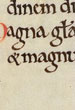 dinem di
magna gła
& magnu